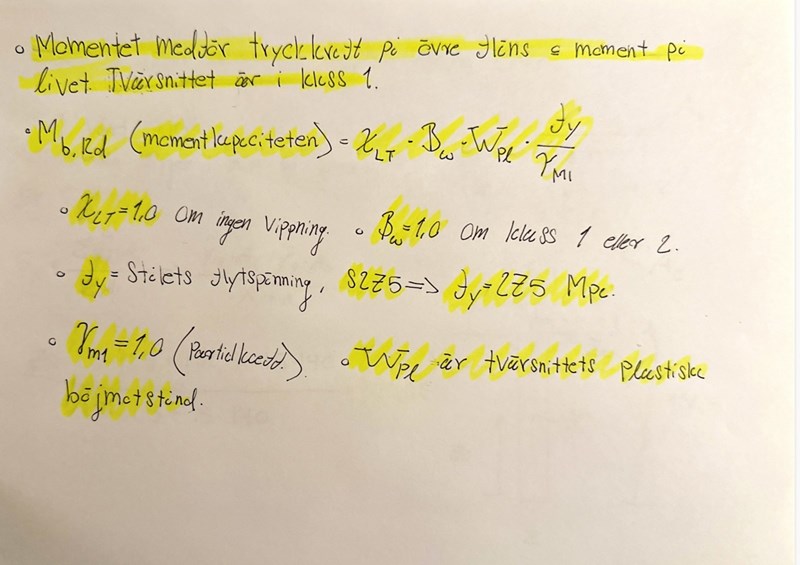 Momentet medför tryckkraft på övre fläns & moment på
livet. Tvärsnittet är i klass 1.
M_b,Rd (momentkapaciteten) = χ_LT · B_w · W_pl · f_y / γ_M1
χ_LT = 1,0 om ingen vippning. B_w = 1,0 om klass 1 eller 2.
f_y = Stålets flytspänning, S275 => f_y = 275 MPa.
γ_m1 = 1,0 (Partialkoeff.). W_pl är tvärsnittets plastiska
böjmotstånd.